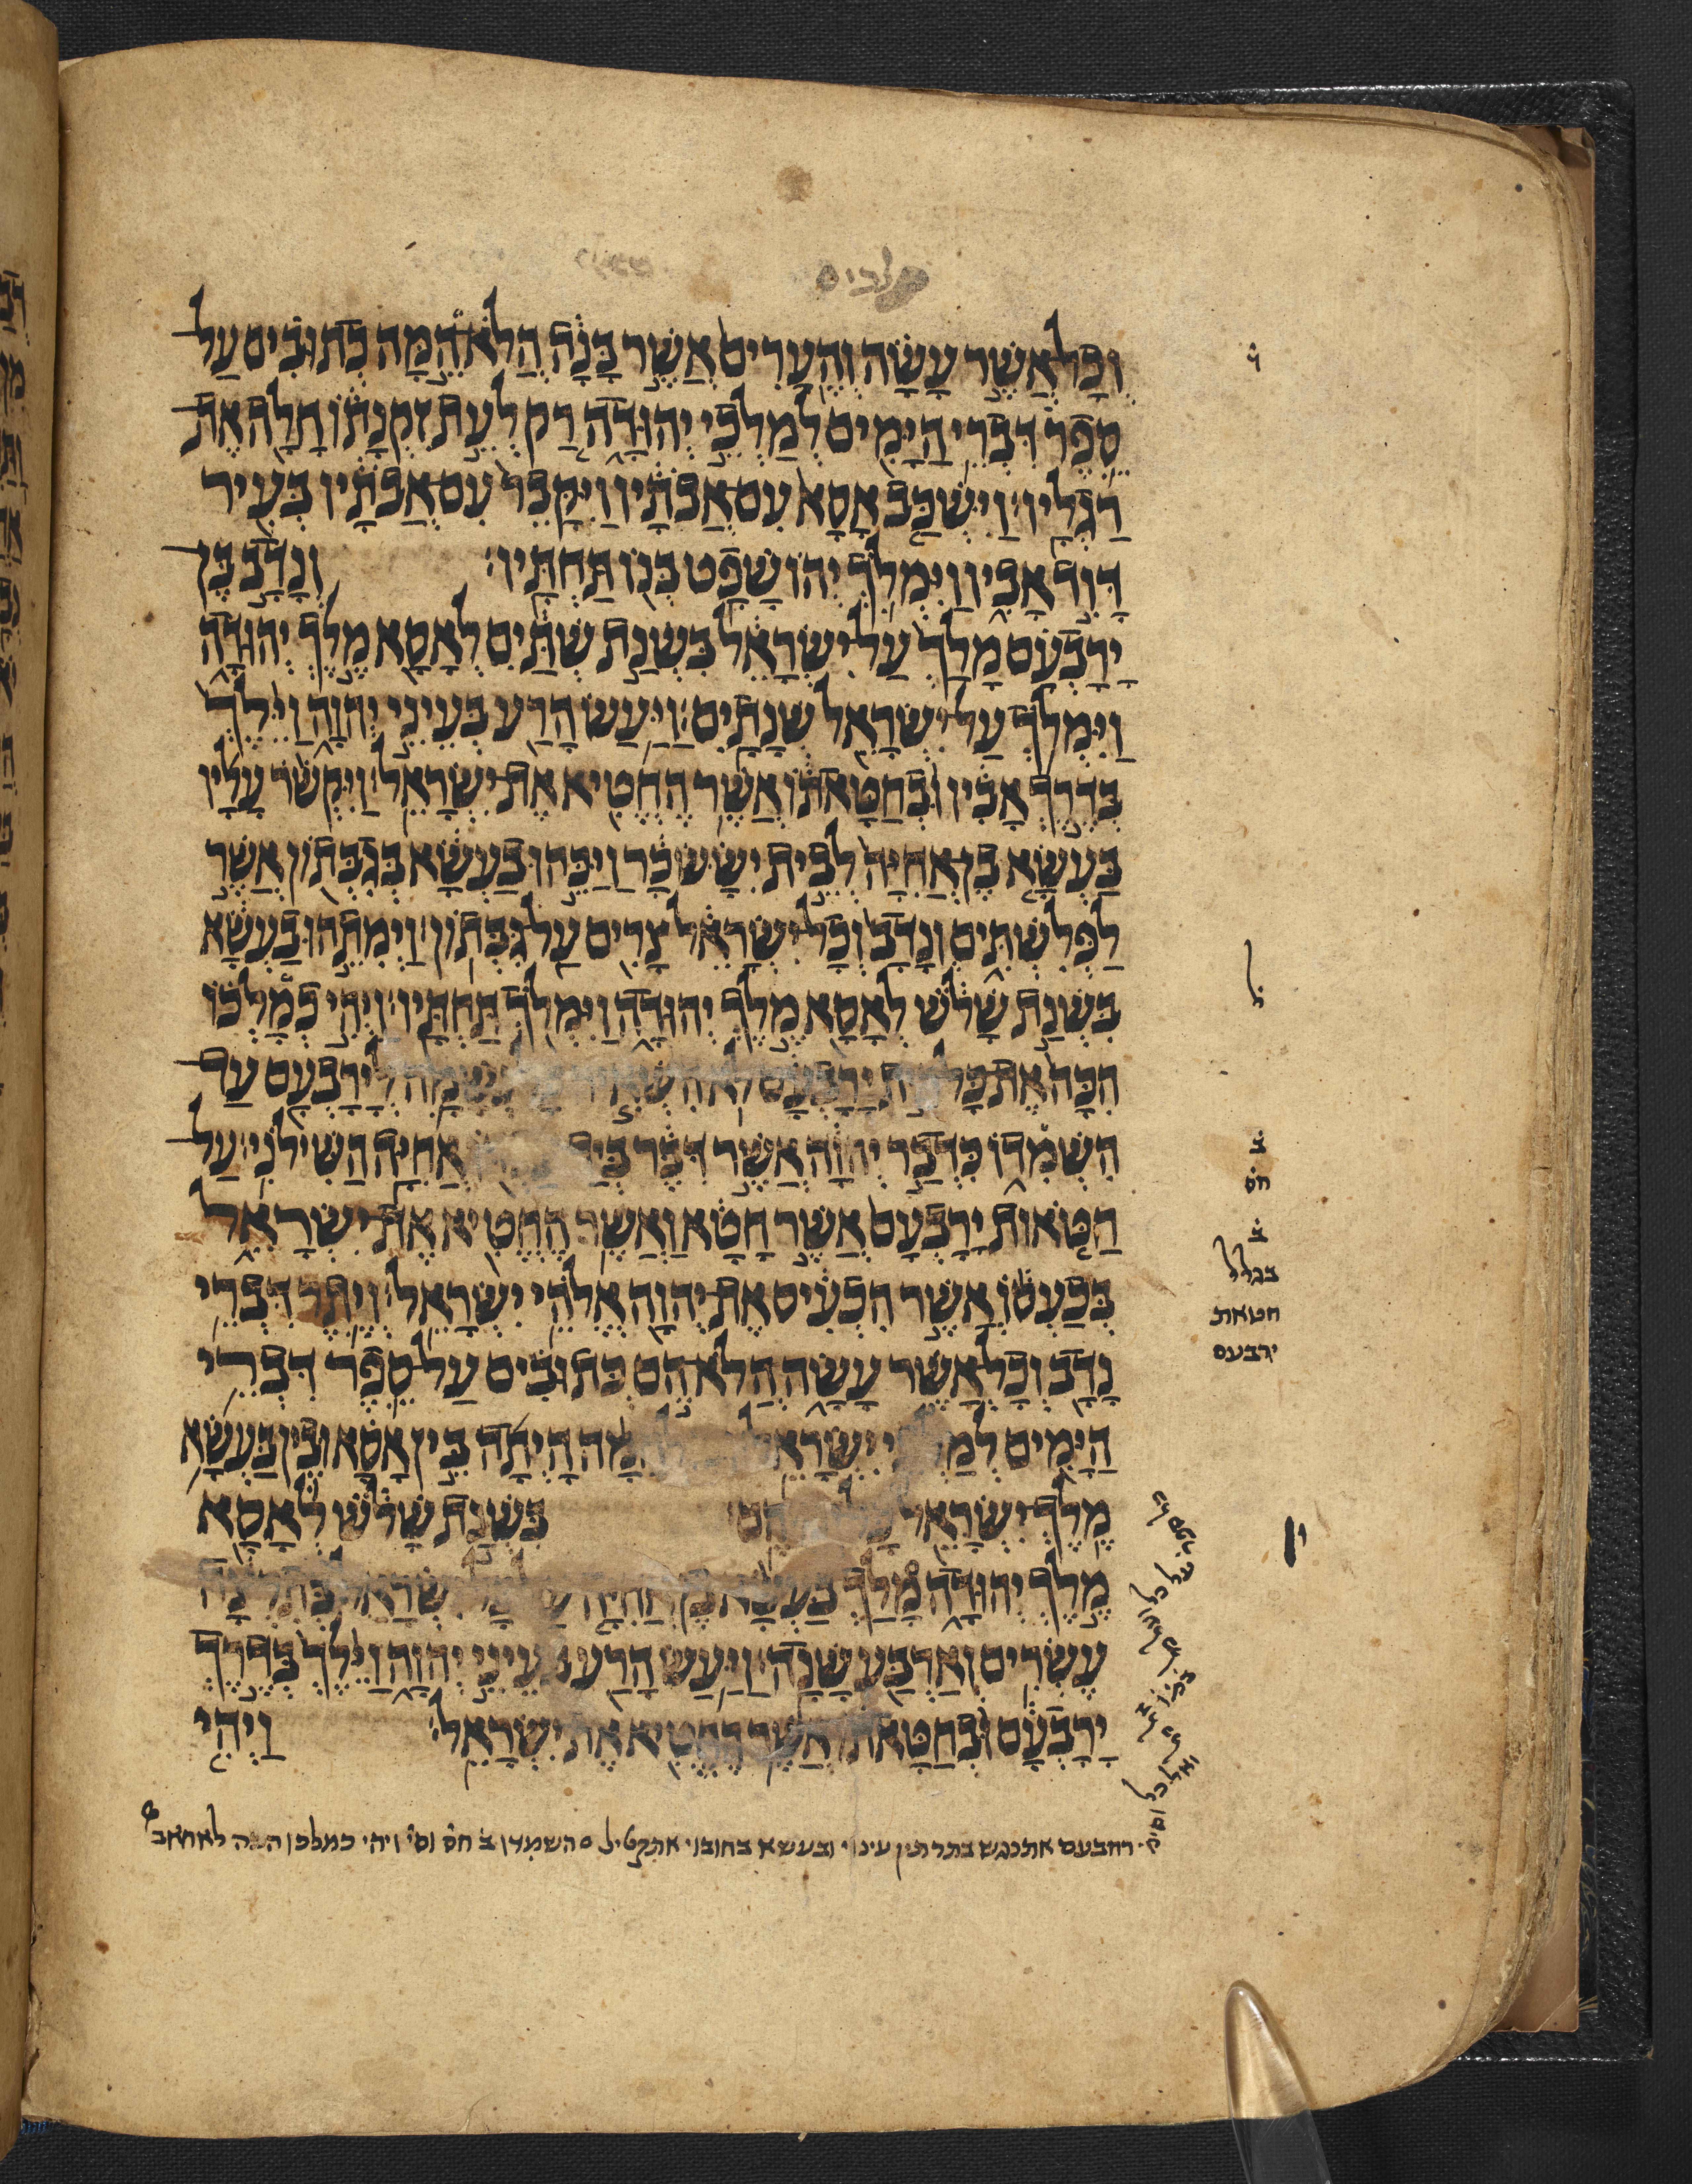 מלכים
וְכָל אֲשֶׁר עָשָׂה וְהֶעָרִים אֲשֶׁר בָּנָה הֲלֹא הֵמָּה כְתוּבִים עַל
סֵפֶר דִּבְרֵי הַיָּמִים לְמַלְכֵי יְהוּדָה רַק לְעֵת זִקְנָתוֹ חָלָה אֶת
רַגְלָיו׃ וַיִּשְׁכַּב אָסָא עִם אֲבֹתָיו וַיִּקָּבֵר עִם אֲבֹתָיו בְּעִיר
דָּוִד אָבִיו וַיִּמְלֹךְ יְהוֹשָׁפָט בְּנוֹ תַּחְתָּיו׃ וְנָדָב בֶּן
יָרָבְעָם מָלַךְ עַל יִשְׂרָאֵל בִּשְׁנַת שְׁתַּיִם לְאָסָא מֶלֶךְ יְהוּדָה
וַיִּמְלֹךְ עַל יִשְׂרָאֵל שְׁנָתָיִם׃ וַיַּעַשׂ הָרַע בְּעֵינֵי יְהוָה וַיֵּלֶךְ
בְּדֶרֶךְ אָבִיו וּבְחַטָּאתוֹ אֲשֶׁר הֶחֱטִיא אֶת יִשְׂרָאֵל׃ וַיִּקְשֹׁר עָלָיו
בַּעְשָׁא בֶן אֲחִיָּה לְבֵית יִשָּׂשכָר וַיַּכֵּהוּ בַעְשָׁא בְּגִבְּתוֹן אֲשֶׁר
לַפְּלִשְׁתִּים וְנָדָב וְכָל יִשְׂרָאֵל צָרִים עַל גִּבְּתוֹן׃ וַיְמִתֵהוּ בַעְשָׁא
בִּשְׁנַת שָׁלֹשׁ לְאָסָא מֶלֶךְ יְהוּדָה וַיִּמְלֹךְ תַּחְתָּיו׃ וַיְהִי כְמָלְכוֹ
הִכָּה אֶת כָּל יָרָבְעָם לֹא הִשְׁאִיר נְשָׁמָה לְיָרָבְעָם עַד
הִשְׁמִדוֹ כִּדְבַר יְהוָה אֲשֶׁר דִּבֶּר בְּיַד אֲחִיָּה הַשִּׁילֹנִי׃ עַל
חַטֹּאות יָרָבְעָם אֲשֶׁר חָטָא וַאֲשֶׁר הֶחֱטִיא אֶת יִשְׂרָאֵל
בְּכַעְסוֹ אֲשֶׁר הִכְעִיס אֶת יְהוָה אֱלֹהֵי יִשְׂרָאֵל׃ וְיֶתֶר דִּבְרֵי
נָדָב וְכָל אֲשֶׁר עָשָׂה הֲלֹא הֵם כְּתוּבִים עַל סֵפֶר דִּבְרֵי
הַיָּמִים לְמַלְכֵי יִשְׂרָאֵל מִלְחָמָה הָיְתָה בֵּין אָסָא וּבֵין בַּעְשָׁא
מֶלֶךְ יִשְׂרָאֵל כָּל יְמֵיהֶם׃ בִּשְׁנַת שָׁלֹשׁ לְאָסָא
מֶלֶךְ יְהוּדָה מָלַךְ בַּעְשָׁא בֶן אֲחִיָּה עַל כָּל יִשְׂרָאֵל בְּתִרְצָה
עֶשְׂרִים וְאַרְבַּע שָׁנָה׃ וַיַּעַשׂ הָרַע בְּעֵינֵי יְהוָה וַיֵּלֶךְ בְּדֶרֶךְ
יָרָבְעָם וּבְחַטָּאתוֹ אֲשֶׁר הֶחֱטִיא אֶת יִשְׂרָאֵל׃ וַיְהִי
ל
ב
חס
ב
בגלל
חטאת
ירבעם
רחבעם אתכנש בתרתין עינוי ובעשא בחובוי אתקטיל ס השמדו ב חס וס ויהי כמלכו הכה